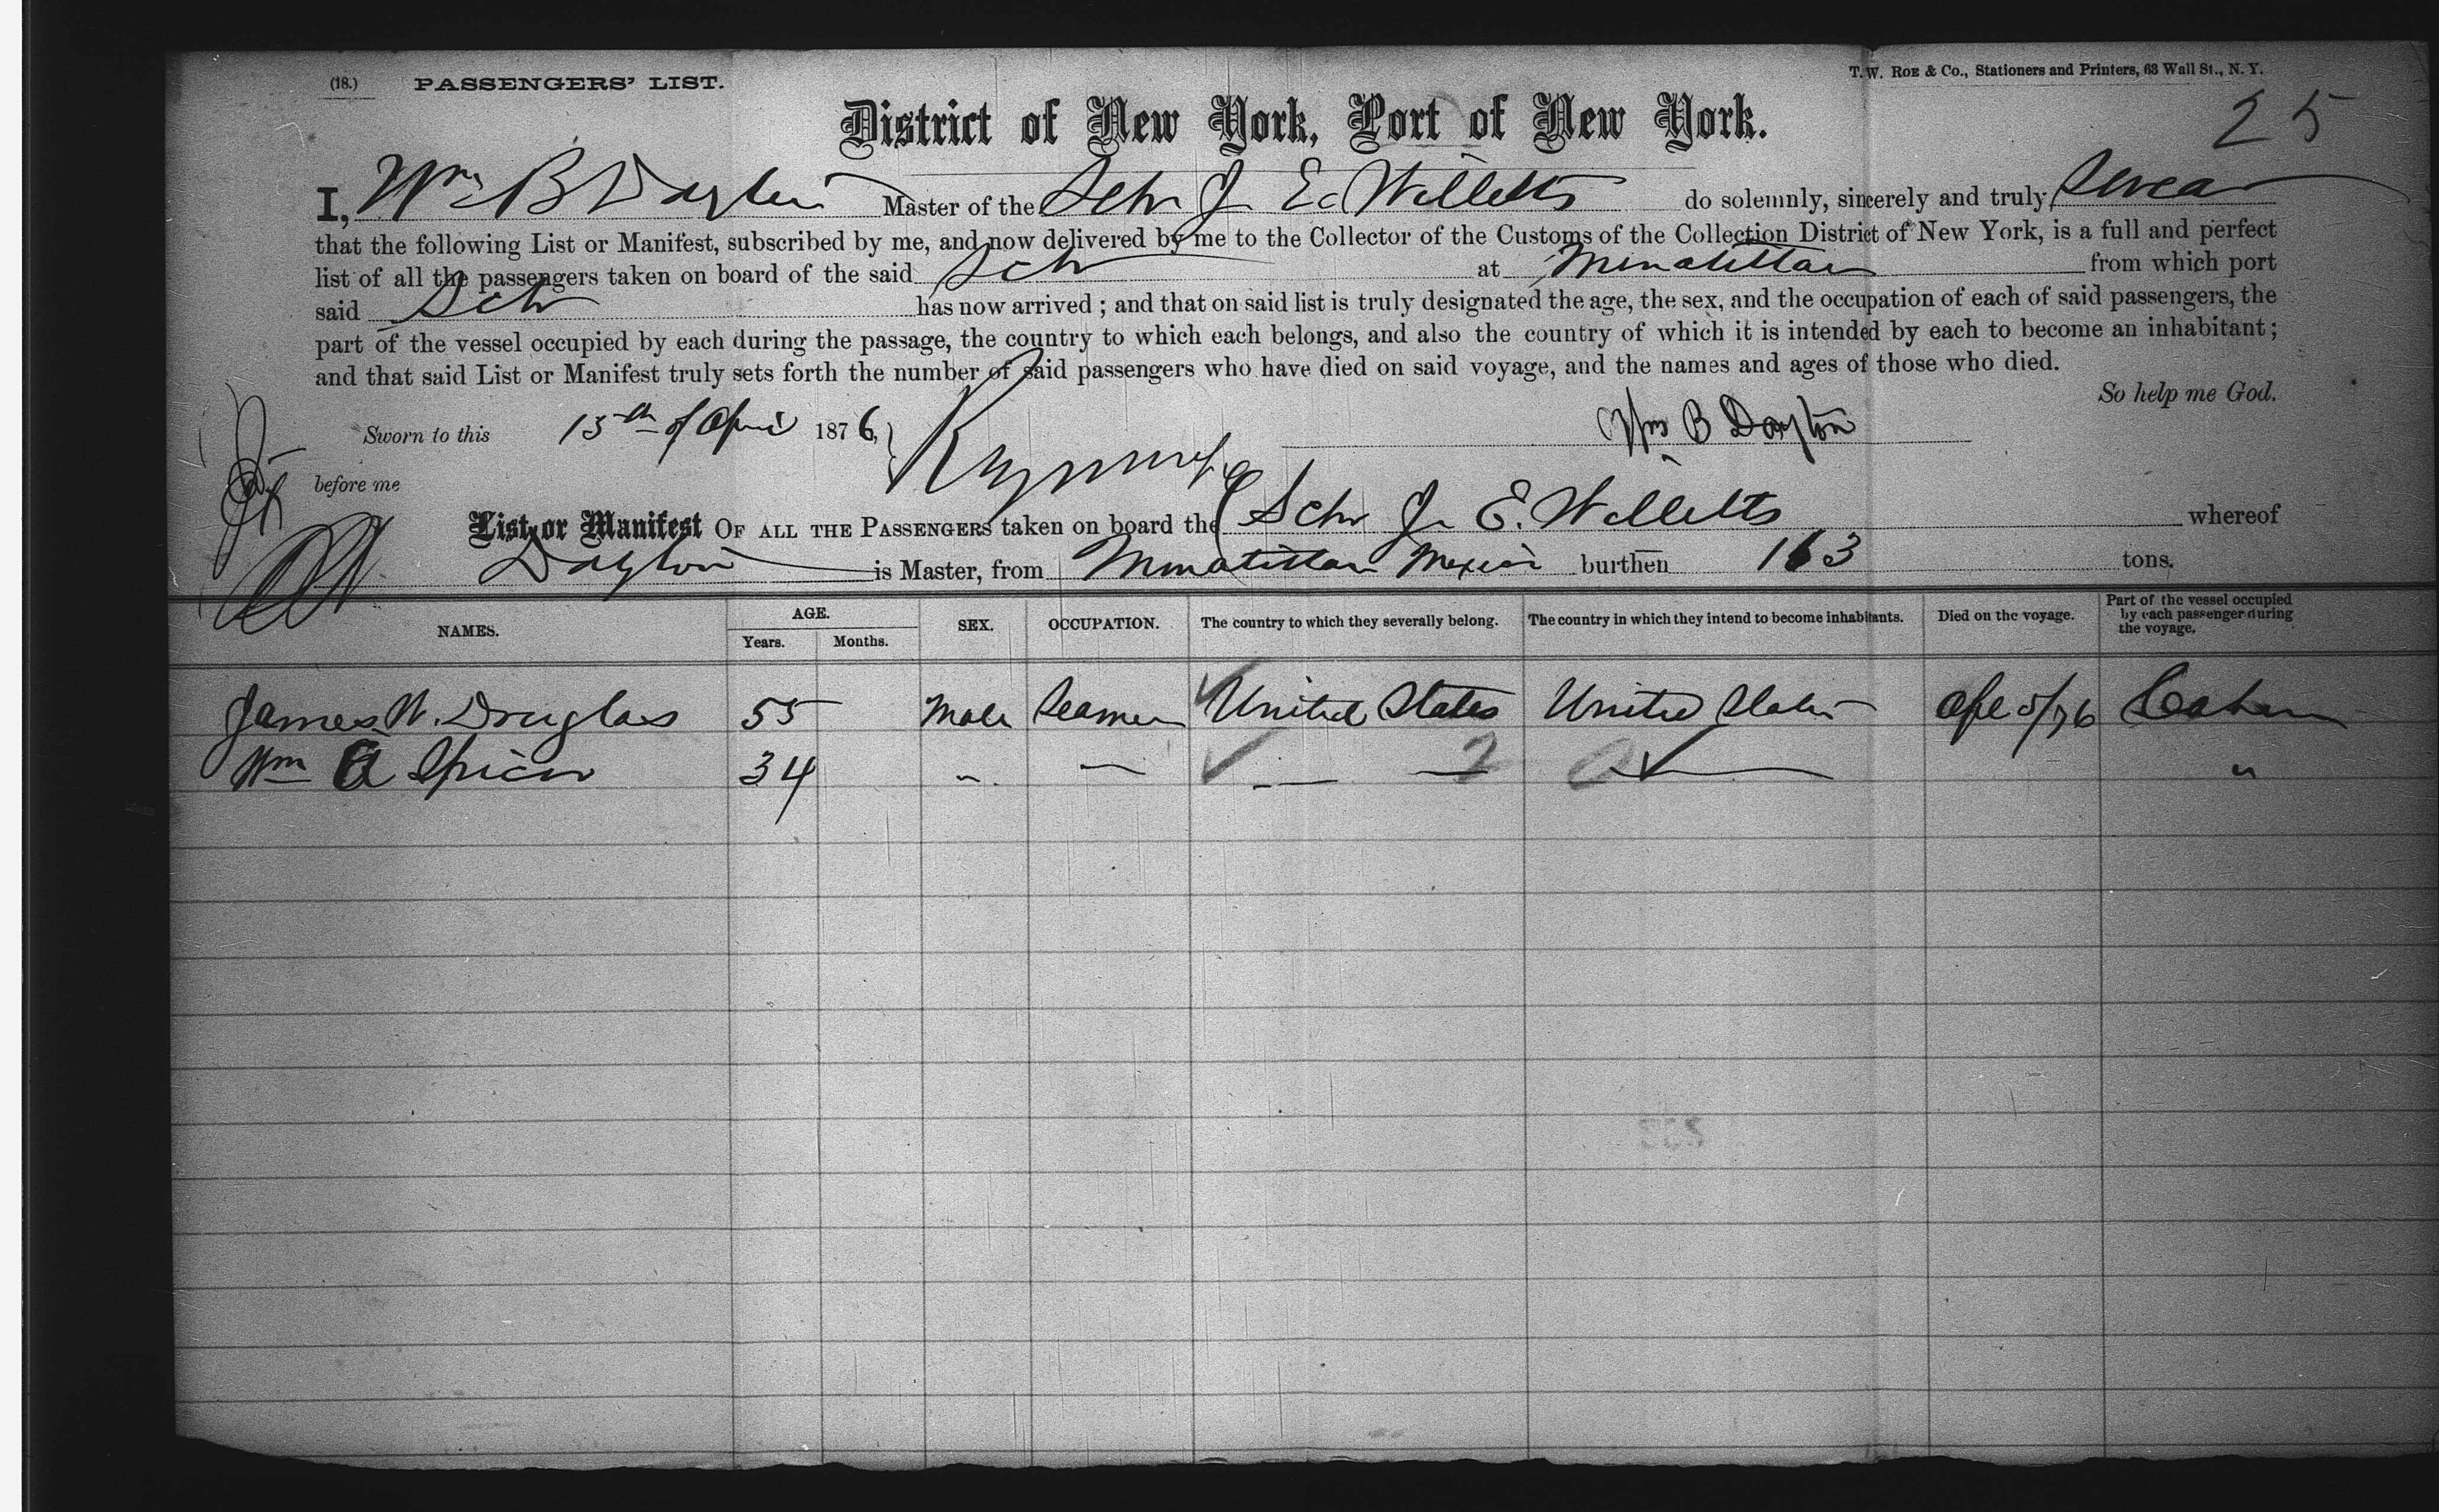 (18.) PASSENGERS' LIST.
T. W. ROE & Co., Stationers and Printers, 63 Wall St., N. Y.
25
District of New York, Port of New York.
I, Wm B Dayton Master of the Schr J. E. Willetts do solemnly, sincerely and truly swear
that the following List or Manifest, subscribed by me, and now delivered by me to the Collector of the Customs of the Collection District of New York, is a full and perfect
list of all the passengers taken on board of the said Schr at Minatitlan from which port
said Schr has now arrived; and that on said list is truly designated the age, the sex, and the occupation of each of said passengers, the
part of the vessel occupied by each during the passage, the country to which each belongs, and also the country of which it is intended by each to become an inhabitant;
and that said List or Manifest truly sets forth the number of said passengers who have died on said voyage, and the names and ages of those who died.
So help me God.
Sworn to this 15th of April 1876, Wm B Dayton
before me
List or Manifest OF ALL THE PASSENGERS taken on board the Schr J. E. Willetts whereof
Dayton is Master, from Minatitlan Mexico burthen 163 tons.
NAMES. AGE. Years. Months. SEX. OCCUPATION. The country to which they severally belong. The country in which they intend to become inhabitants. Died on the voyage. Part of the vessel occupied by each passenger during the voyage.
James W. Douglas 55 Male Seaman United States United States Apl 5/76
Wm A Spicer 34 " — — — — "